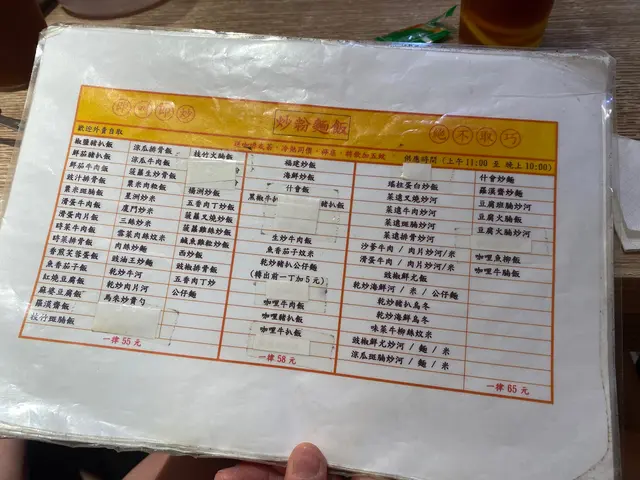 即叫即炒
炒粉麵飯
絕不取巧
歡迎外賣自取
供應時間 (上午11:00 至 晚上10:00)
椒鹽豬扒飯
鮮茄豬扒飯
鮮茄牛肉飯
豉汁排骨飯
粟米斑腩飯
滑蛋牛肉飯
滑蛋肉片飯
時菜牛肉飯
時菜排骨飯
香煎芙蓉蛋飯
魚香茄子飯
紅燒豆腐飯
麻婆豆腐飯
羅漢齋飯
枝竹斑腩飯
涼瓜排骨飯
涼瓜牛肉飯
菠蘿生炒骨飯
粟米肉粒飯
星洲炒米
廈門炒米
三絲炒米
雪菜肉絲炆米
肉絲炒麵
豉油王炒麵
乾炒牛河
乾炒肉片河
馬來炒貴刁
枝竹火腩飯
揚洲炒飯
五香肉丁炒飯
菠蘿叉燒炒飯
菠蘿雞絲炒飯
鹹魚雞粒炒飯
西炒飯
豉椒排骨飯
五香肉丁炒
公仔麵
一律 55 元
福建炒飯
海鮮炒飯
什會飯
黑椒牛扒
豬扒飯
生炒牛肉飯
魚香茄子炆米
乾炒豬扒公仔麵
(轉出前一丁加5元)
咖哩牛肉飯
咖哩豬扒飯
咖哩牛扒飯
一律 58 元
瑤柱蛋白炒飯
菜遠叉燒炒河
菜遠牛肉炒河
菜遠斑腩炒河
菜遠排骨炒河
沙爹牛肉 / 肉片炒河/米
滑蛋牛肉 / 肉片炒河/米
豉椒鮮尤飯
乾炒海鮮河 / 米 / 公仔麵
乾炒豬扒烏冬
乾炒海鮮烏冬
味菜牛柳絲炆米
豉椒鮮尤炒河 / 麵 / 米
涼瓜斑腩炒河 / 麵 / 米
什會炒麵
羅漢齋炒麵
豆腐班腩炒河
豆腐火腩飯
豆腐火腩炒河
咖哩魚柳飯
咖哩牛腩飯
一律 65 元